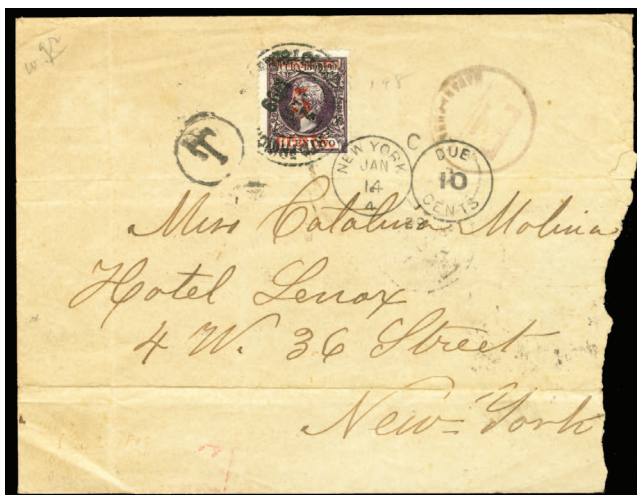 T
NEW YORK
JAN
14
DUE
10
CENTS
Miss Catalina Molina
Hotel Lenox
4 W. 36 Street
New York